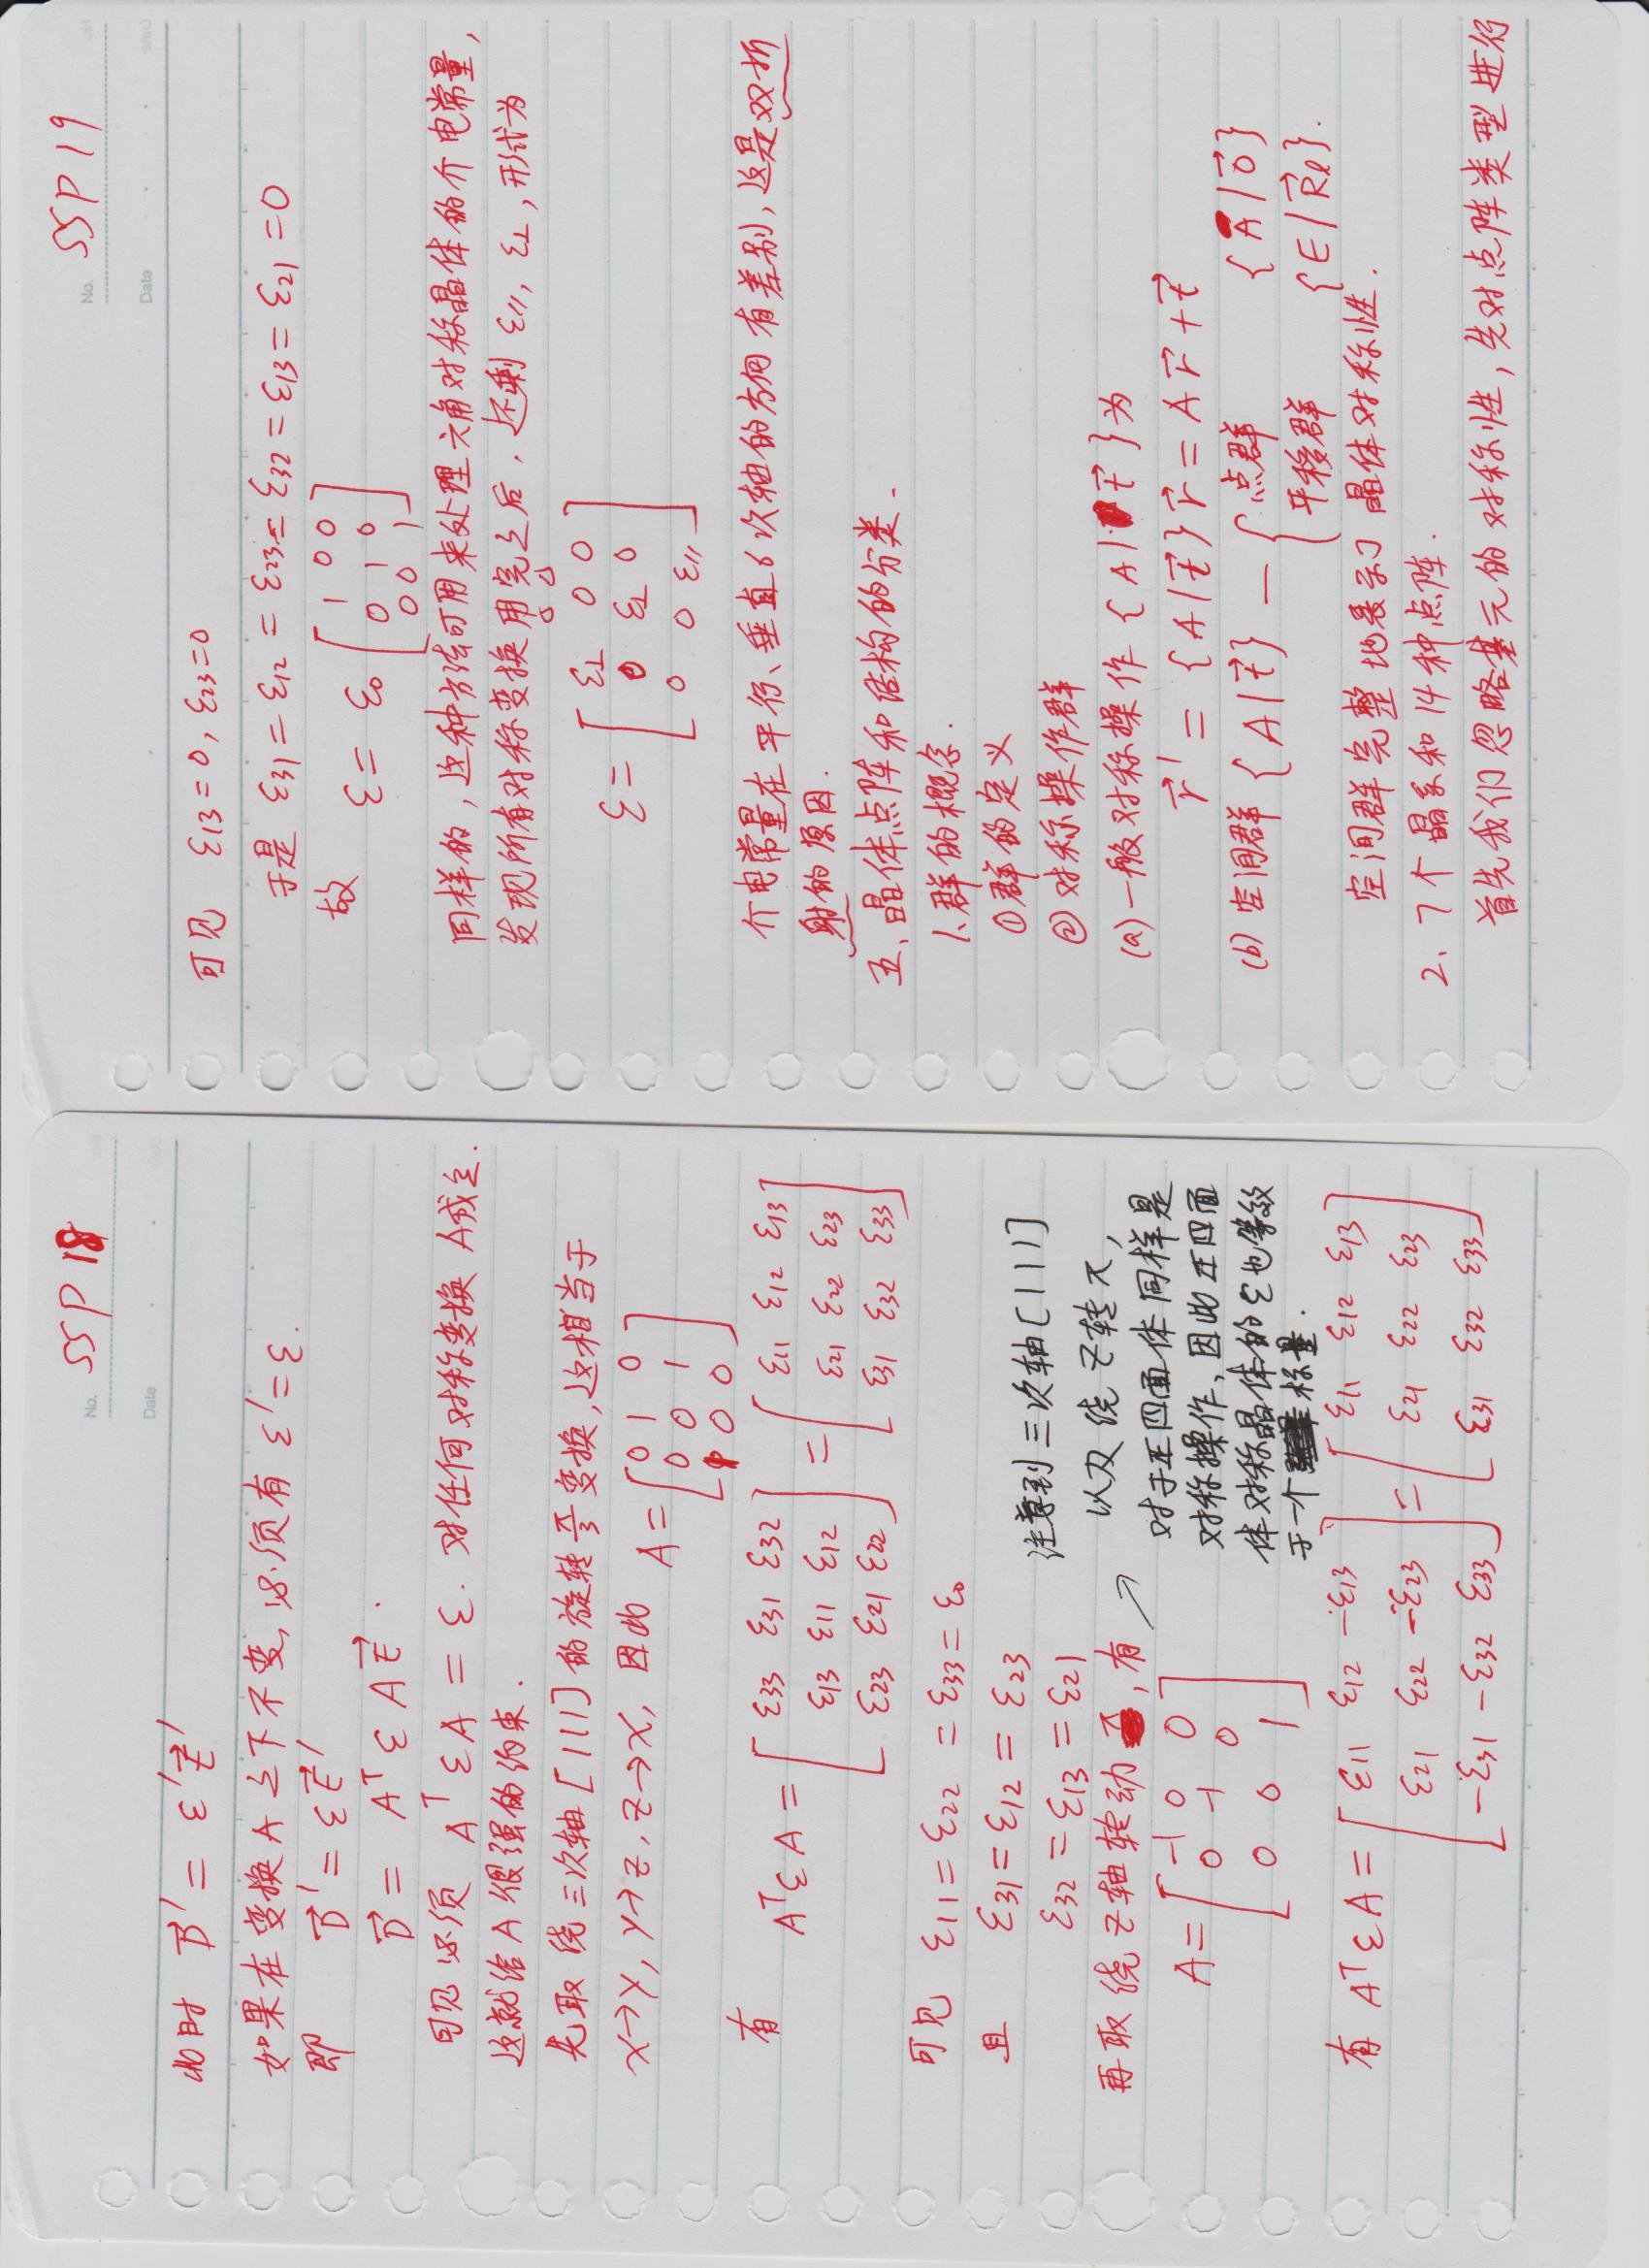 No. SSP 18
Date
此时 D⃗′ = ε′E⃗′
如果在变换A之下不变,必须有 ε′=ε.
即 D⃗′ = εE⃗′
D⃗ = AᵀεAE⃗.
可见必须 AᵀεA = ε. 对任何对称变换 A成立.
这就给A很强的约束.
先取绕三次轴[111]的旋转π/3变换,这相当于
x→y, y→z, z→x, 因此 A = [0 1 0
0 0 1
1 0 0]
有 AᵀεA = [ε33 ε31 ε32
ε13 ε11 ε12
ε23 ε21 ε22] = [ε11 ε12 ε13
ε21 ε22 ε23
ε31 ε32 ε33]
可见 ε11 = ε22 = ε33 = ε0
且 ε31 = ε12 = ε23
ε32 = ε13 = ε21
再取绕Z轴转动π,有
A = [-1 0 0
0 -1 0
0 0 1]
注意到三次轴[111]
以及绕Z转π,
对于正四面体同样是
对称操作,因此正四面
体对称晶体的ε也等效
于一个标量.
有 AᵀεA = [ε11 ε12 -ε13
ε21 ε22 -ε23
-ε31 -ε32 ε33] = [ε11 ε12 ε13
ε21 ε22 ε23
ε31 ε32 ε33]
No. SSP 19
Date
可见 ε13=0, ε23=0
于是 ε31 = ε12 = ε23 = ε32 = ε13 = ε21 = 0
故 ε = ε0 [1 0 0
0 1 0
0 0 1]
同样的,这种方法可用来处理六角对称晶体的介电常量,
发现所有对称变换用完之后,还剩 ε//, ε⊥,形式为
0 0
ε = [ε⊥ 0 0
0 ε⊥ 0
0 0 ε//]
介电常量在平行、垂直6次轴的方向有差别,这是双折
射的原因.
五、晶体点阵和结构的分类.
1、群的概念.
①群的定义
②对称操作群
(a)一般对称操作 {A|t⃗}为
r⃗′ = {A|t⃗}r⃗ = Ar⃗+t⃗
(b)空间群 {A|t⃗} — { 点群 {A|0⃗}
平移群 {E|R⃗l}.
空间群完整地表示了晶体对称性.
2、7个晶系和14种点阵.
首先我们忽略基元的对称性,先对点阵类型进行